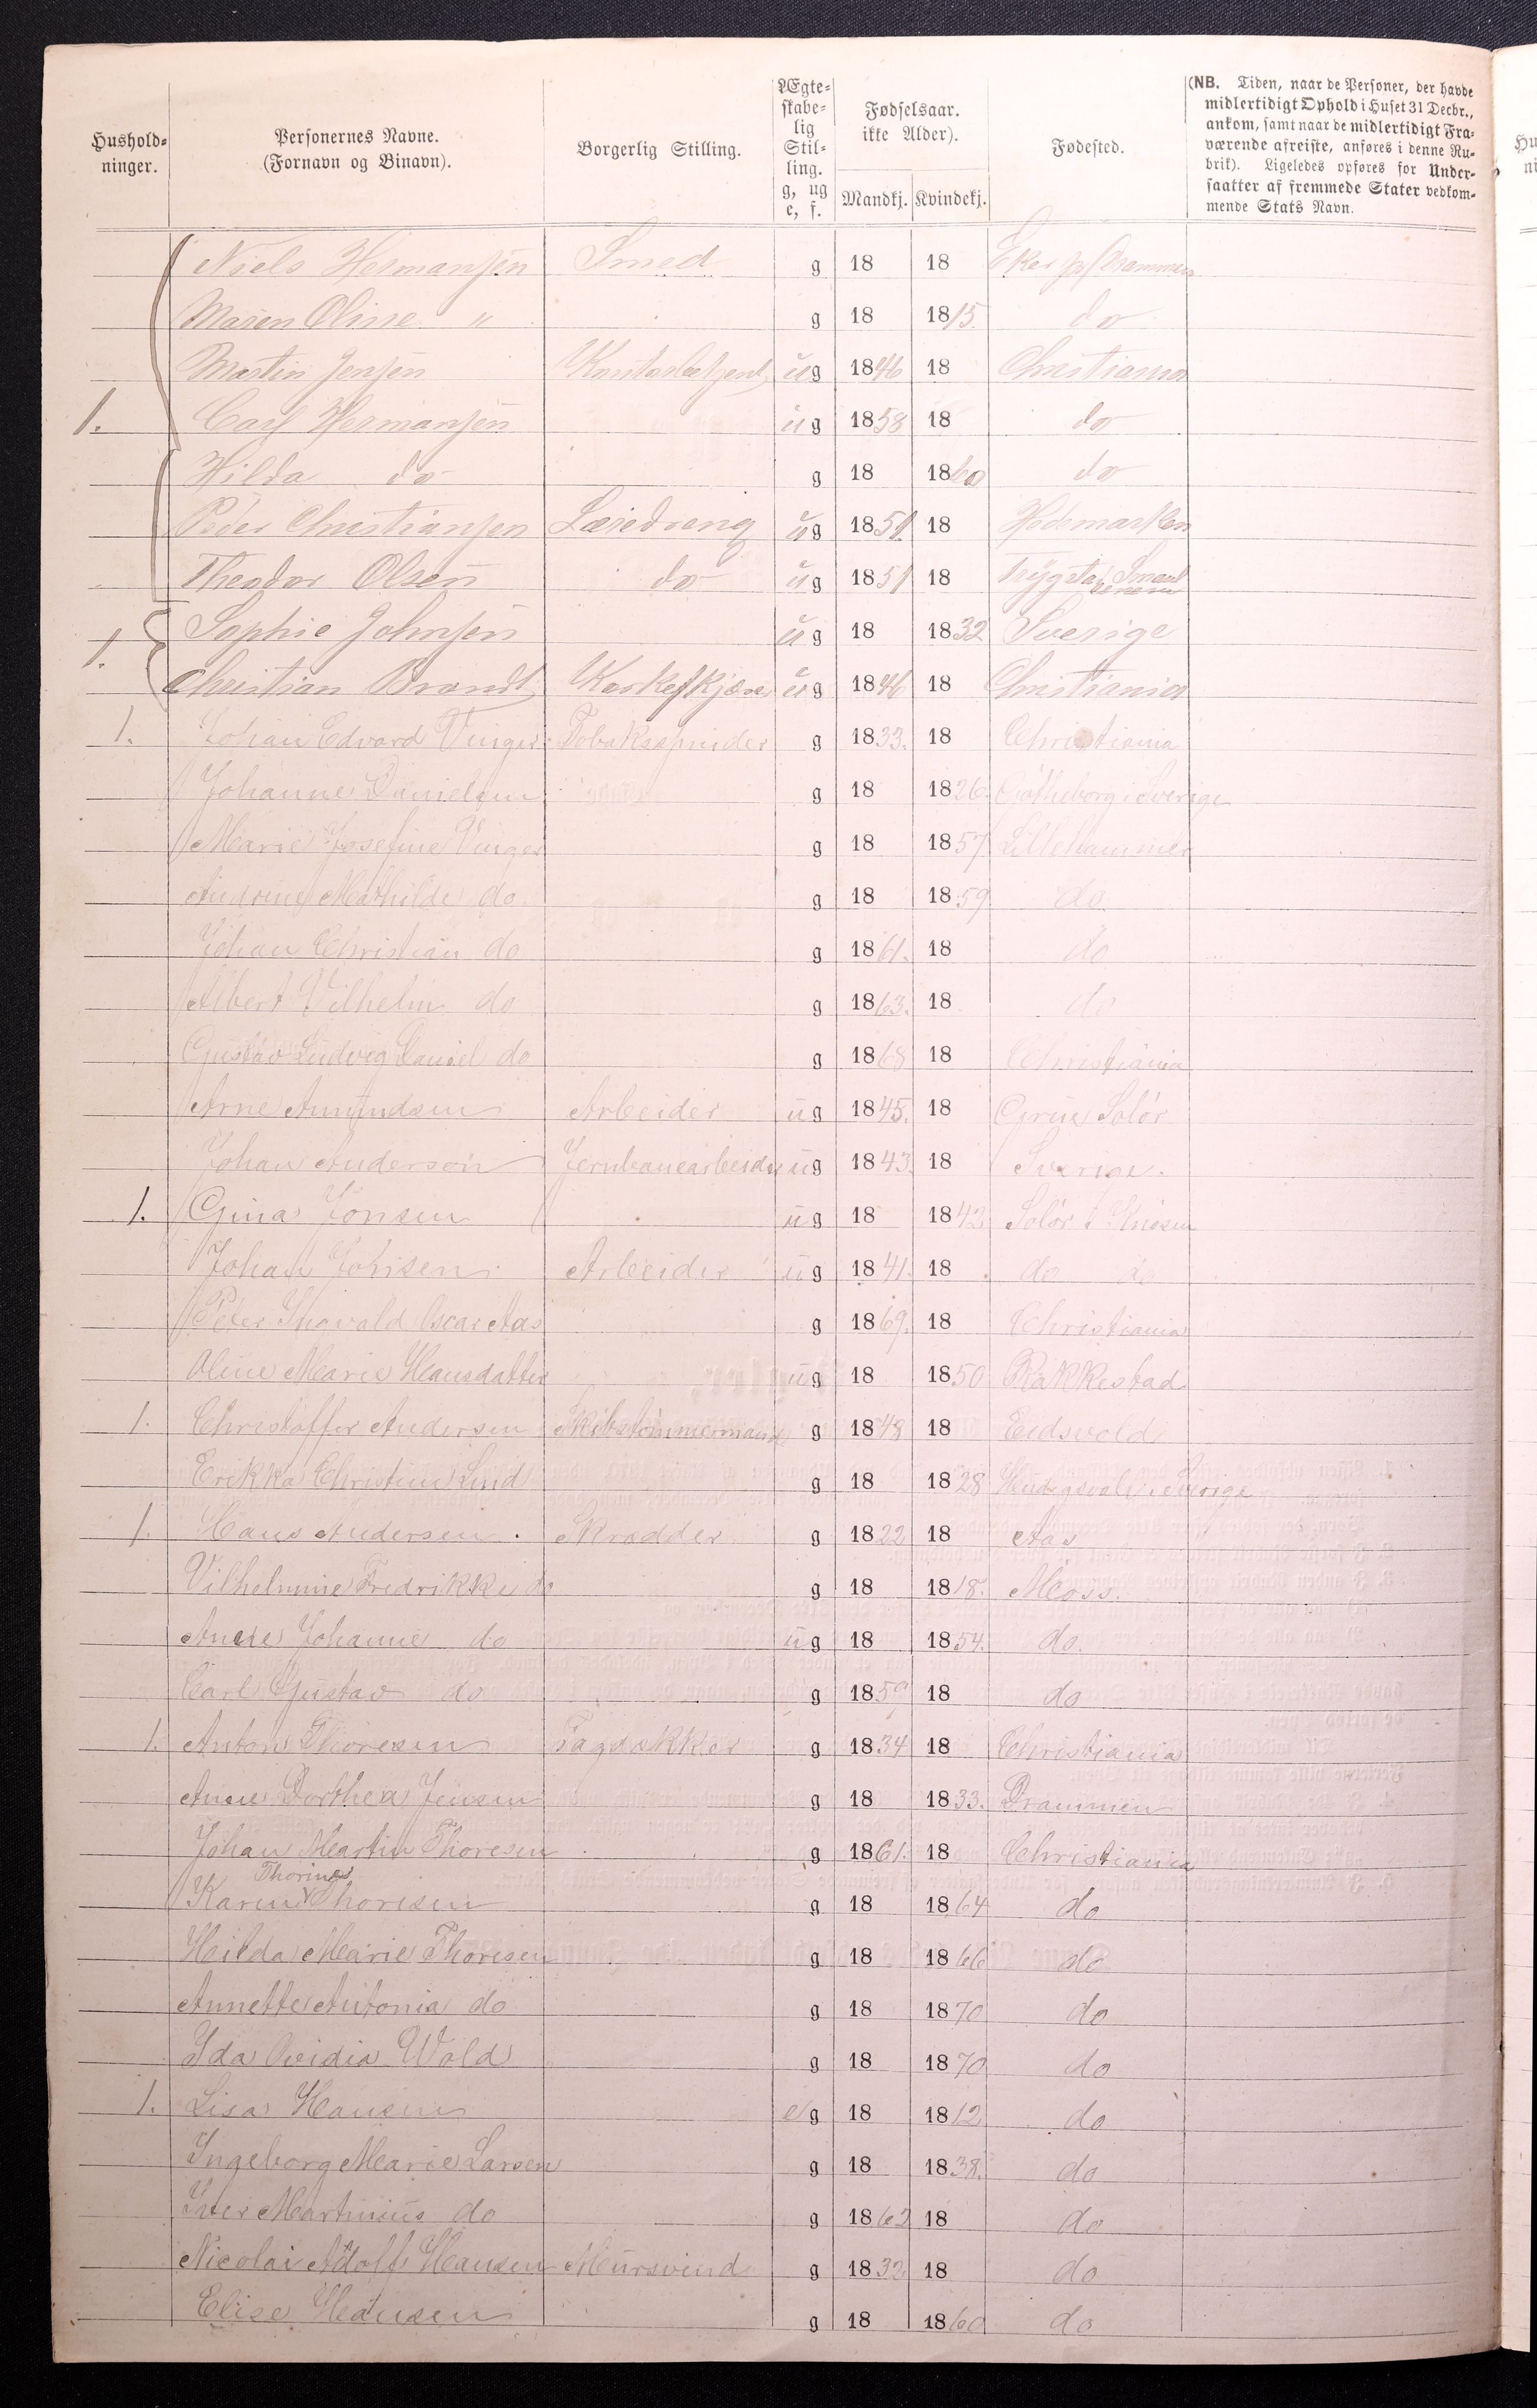 Hushold-
ninger.
Personernes Navne.
(Fornavn og Binavn).
Borgerlig Stilling.
Ægte-
skabe-
lig
Stil-
ling.
g, ug
e, f.
Fødselsaar.
ikke Alder).
Mandkj. Kvindekj.
Fødested.
(NB. Tiden, naar de Personer, der havde
midlertidigt Ophold i Huset 31 Decbr.,
ankom, samt naar de midlertidigt Fra-
værende afreiste, anføres i denne Ru-
brik). Ligeledes opføres for Under-
saatter af fremmede Stater vedkom-
mende Stats Navn.
Niels Hermansen Smed g 18 18 Eker Drammen
Maren Oline " g 18 1815. do
Martin Jensen ug 1846 18 Christiania
1. Carl Hermansen ug 1858 18 do
Hilda do g 18 1860 do
Peder Christiansen Læredreng ug 1851 18 Hedemarken
Theodor Olsen do ug 1851 18 Trygstad
1. Sophie Johnsen ug 18 1832 Sverige
Christian Brandt Korkeskjærer ug 1846 18 Christiania
1. Johan Edvard Vinger Tobaksspinder g 1833. 18 Christiania
Johanne Danielsen g 18 1826. Gøtheborg i Sverige
Marie Josefine Vinger g 18 1857 Lillehammer
Mathilde do g 18 1859 do
Johan Christian do g 1861. 18 do
Albert Vilhelm do g 1863. 18 do
Gustav Ludvig Daniel do g 1868 18 Christiania
Arne Amundsen Arbeider ug 1845. 18 Grue Solør
Johan Anderson Jernbanearbeider ug 1843. 18 Sverige.
1. Gina Jonsen ug 18 1842 Solør
Johan Johnsen Arbeider ug 1841. 18 do do
Peter Thorvald Oscar Aas g 1869. 18 Christiania
Oline Marie Hansdatter ug 18 1850 Rakkestad
1. Christoffer Andersen Skibstømmermand g 1848 18 Eidsvold
Erikka Christine Lind g 18 1828 Sverige
1. Hans Andersen. Skradder g 1822 18 Aas
Vilhelmine Fredrikke do g 18 1818. Moss.
Anne Johanne do ug 18 1854. do.
Carl Gustav do g 1859 18 do
1. Anton Thoresen Tagdækker g 1834 18 Christiania
Anne Dorthea Jensen g 18 1833. Drammen
Johan Martin Thoresen g 1861. 18 Christiania
Thorine
Karen Thoresen g 18 1864 do
Hilda Marie Thoresen g 18 1866 do
Annette Antonia do g 18 1870 do
Ida Ovidia Wold g 18 1870 do
1. Lisa Hansen e g 18 1812 do
Ingeborg Marie Larsen g 18 1838. do
Iver Martinius do g 1862 18 do
Nicolai Adolf Hansen Mursvend g 1832 18 do
Elise Hansen g 18 1860 do